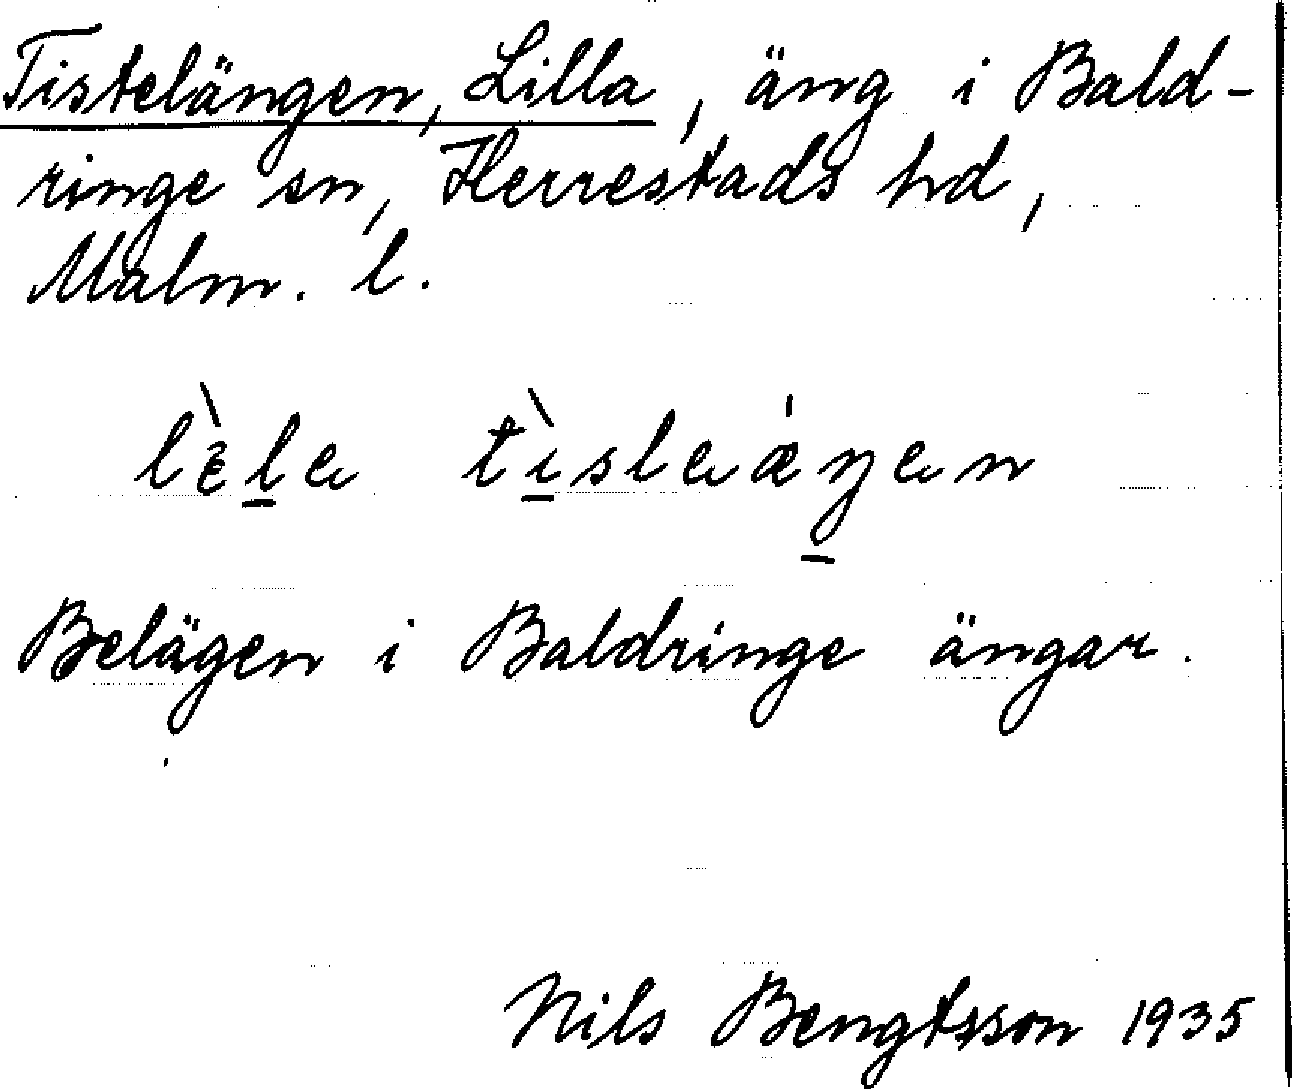 Tistelängen, Lilla, äng i Bald-
ringe sn, Herrestads hd,
Malm. l.
lὲle tìsleǽŋen
Belägen i Baldringe ängar.
Nils Bengtsson 1935